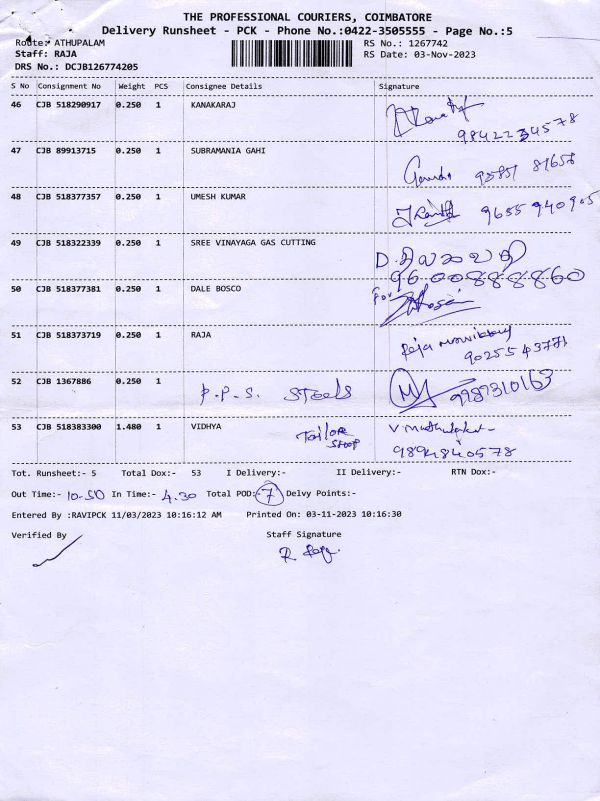 THE PROFESSIONAL COURIERS, COIMBATORE
Delivery Runsheet - PCK - Phone No.:0422-3505555 - Page No.:5
Route: ATHUPALAM
RS No.: 1267742
Staff: RAJA
RS Date: 03-Nov-2023
DRS No.: DCJB126774205
S No Consignment No Weight PCS Consignee Details Signature
46 CJB 518290917 0.250 1 KANAKARAJ
9842234578
47 CJB 89913715 0.250 1 SUBRAMANIA GAHI
48 CJB 518377357 0.250 1 UMESH KUMAR
9655940905
49 CJB 518322339 0.250 1 SREE VINAYAGA GAS CUTTING
9600888860
50 CJB 518377381 0.250 1 DALE BOSCO For
51 CJB 518373719 0.250 1 RAJA
9025543771
52 CJB 1367886 0.250 1 P.P.S. STEELS
53 CJB 518383300 1.480 1 VIDHYA Tailor
SHOP
9894840578
Tot. Runsheet:- 5 Total Dox:- 53 I Delivery:- II Delivery:- RTN Dox:-
Out Time:- 10.50 In Time:- 4.30 Total POD:- 7 Delvy Points:-
Entered By :RAVIPCK 11/03/2023 10:16:12 AM Printed On: 03-11-2023 10:16:30
Verified By Staff Signature